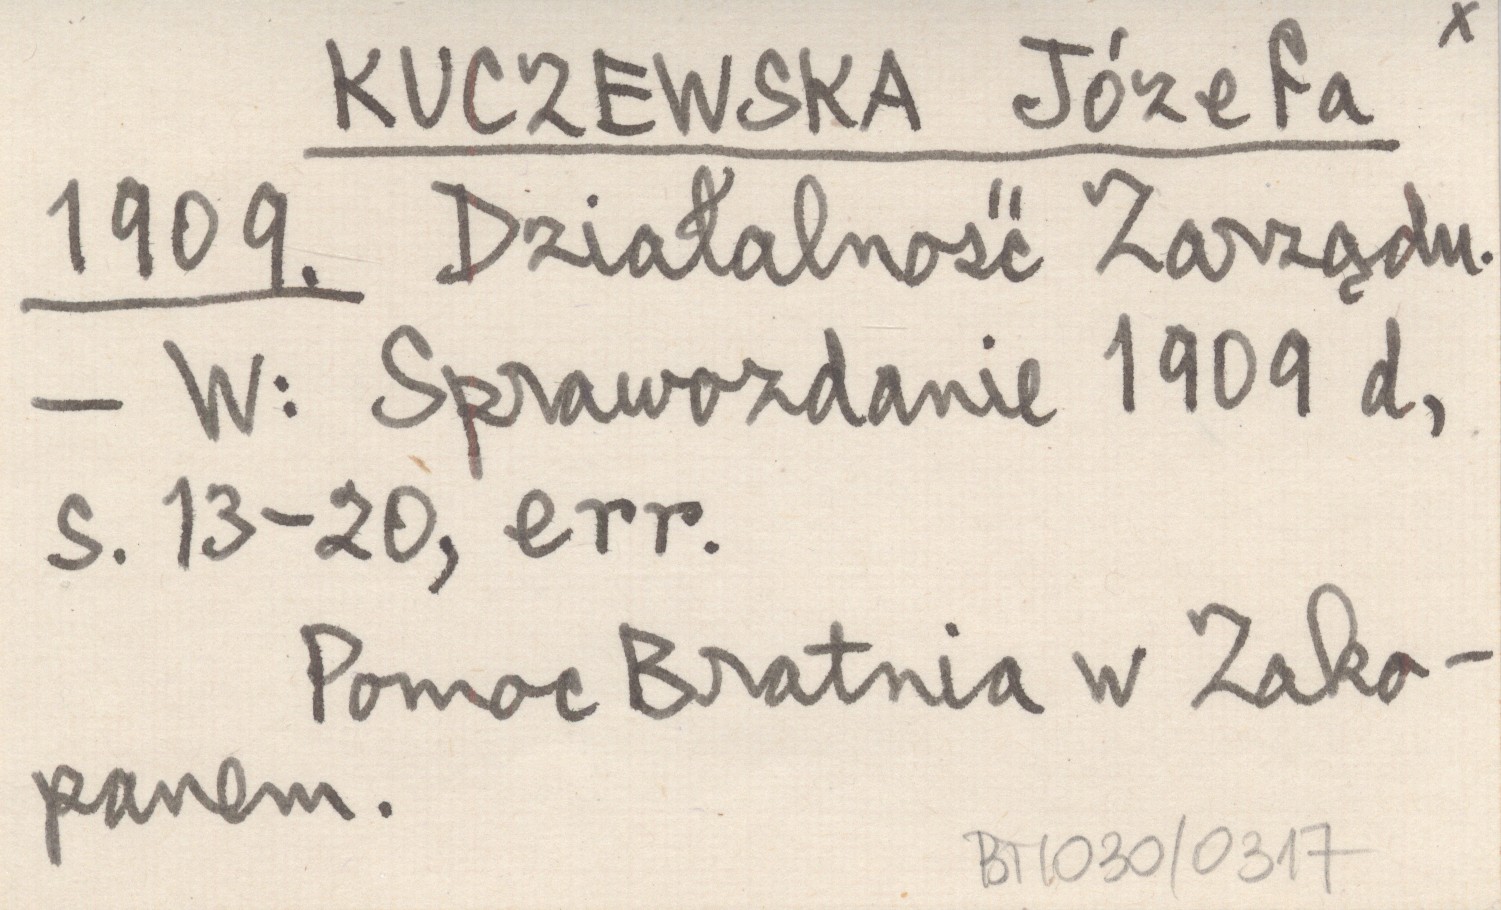 x
KUCZEWSKA Józefa
1909. Działalność Zarządu.
— W: Sprawozdanie 1909 d,
s. 13-20, err.
Pomoc Bratnia w Zako-
panem.
BT/030/0317